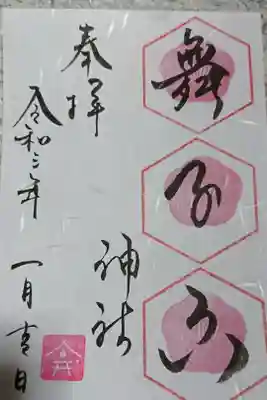 舞子六
奉拝
神社
令和三年
一月吉日